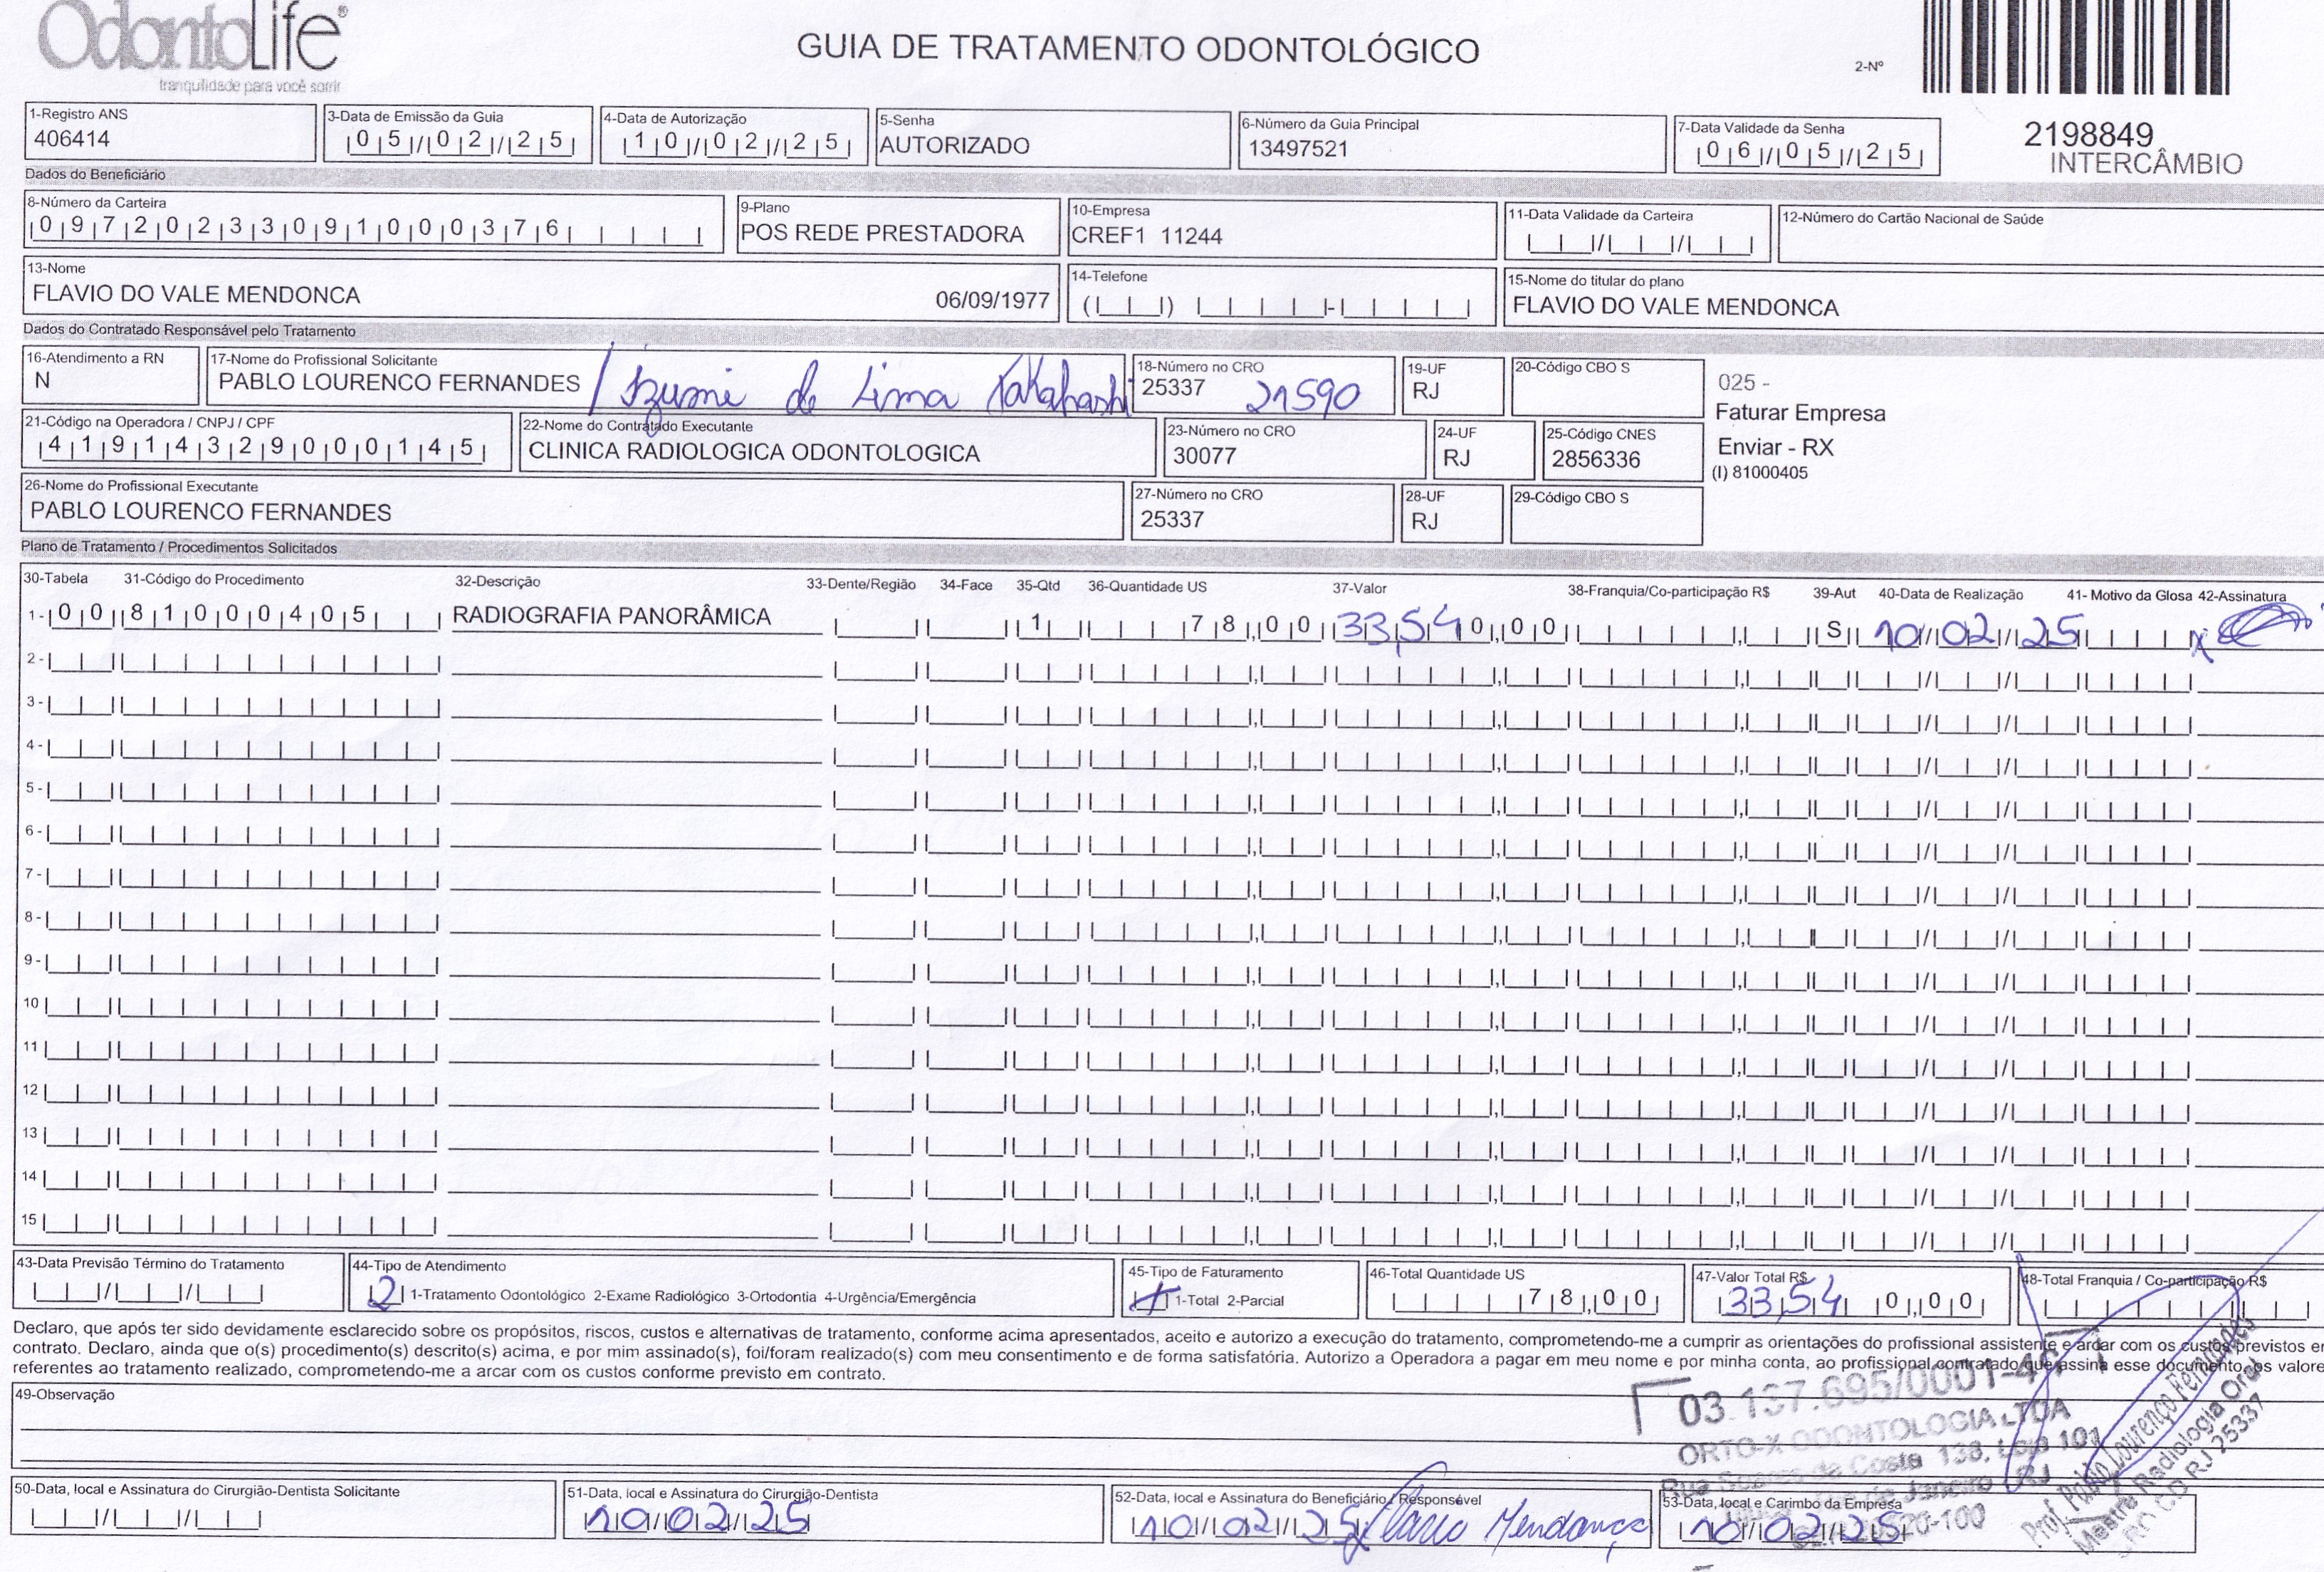 OdontoLife®
tranquilidade para você sorrir
GUIA DE TRATAMENTO ODONTOLÓGICO
2-Nº
2198849
INTERCÂMBIO
1-Registro ANS
406414
3-Data de Emissão da Guia
05/02/25
4-Data de Autorização
10/02/25
5-Senha
AUTORIZADO
6-Número da Guia Principal
13497521
7-Data Validade da Senha
06/05/25
Dados do Beneficiário
8-Número da Carteira
09720233091000376
9-Plano
POS REDE PRESTADORA
10-Empresa
CREF1 11244
11-Data Validade da Carteira
12-Número do Cartão Nacional de Saúde
13-Nome
FLAVIO DO VALE MENDONCA 06/09/1977
14-Telefone
15-Nome do titular do plano
FLAVIO DO VALE MENDONCA
Dados do Contratado Responsável pelo Tratamento
16-Atendimento a RN
N
17-Nome do Profissional Solicitante
PABLO LOURENCO FERNANDES / Izumi de Lima Takahashi
18-Número no CRO
25337 21590
19-UF
RJ
20-Código CBO S
025 -
Faturar Empresa
Enviar - RX
(I) 81000405
21-Código na Operadora / CNPJ / CPF
41914329000145
22-Nome do Contratado Executante
CLINICA RADIOLOGICA ODONTOLOGICA
23-Número no CRO
30077
24-UF
RJ
25-Código CNES
2856336
26-Nome do Profissional Executante
PABLO LOURENCO FERNANDES
27-Número no CRO
25337
28-UF
RJ
29-Código CBO S
Plano de Tratamento / Procedimentos Solicitados
30-Tabela 31-Código do Procedimento 32-Descrição 33-Dente/Região 34-Face 35-Qtd 36-Quantidade US 37-Valor 38-Franquia/Co-participação R$ 39-Aut 40-Data de Realização 41- Motivo da Glosa 42-Assinatura
1- 00 81000405 RADIOGRAFIA PANORÂMICA 1 78,00 33,54 0,00 S 10/02/25 x
2-
3-
4-
5-
6-
7-
8-
9-
10
11
12
13
14
15
43-Data Previsão Término do Tratamento
44-Tipo de Atendimento
2 1-Tratamento Odontológico 2-Exame Radiológico 3-Ortodontia 4-Urgência/Emergência
45-Tipo de Faturamento
1 1-Total 2-Parcial
46-Total Quantidade US
78,00
47-Valor Total R$
33,54 0,00
48-Total Franquia / Co-participação R$
Declaro, que após ter sido devidamente esclarecido sobre os propósitos, riscos, custos e alternativas de tratamento, conforme acima apresentados, aceito e autorizo a execução do tratamento, comprometendo-me a cumprir as orientações do profissional assistente e arcar com os custos previstos em
contrato. Declaro, ainda que o(s) procedimento(s) descrito(s) acima, e por mim assinado(s), foi/foram realizado(s) com meu consentimento e de forma satisfatória. Autorizo a Operadora a pagar em meu nome e por minha conta, ao profissional contratado que assina esse documento, os valore
referentes ao tratamento realizado, comprometendo-me a arcar com os custos conforme previsto em contrato.
49-Observação
03.137.695/0001-
ORTO-X ODONTOLOGIA LTDA
Rua Soares da Costa 138, Loja 101
de Janeiro - RJ
-100
Prof. Pablo Lourenço Fernandes
Mestre Radiologia Oral
CRO CD RJ 25337
50-Data, local e Assinatura do Cirurgião-Dentista Solicitante
51-Data, local e Assinatura do Cirurgião-Dentista
10/02/25
52-Data, local e Assinatura do Beneficiário / Responsável
10/02/25 Flavio Mendonça
53-Data, local e Carimbo da Empresa
10/02/25